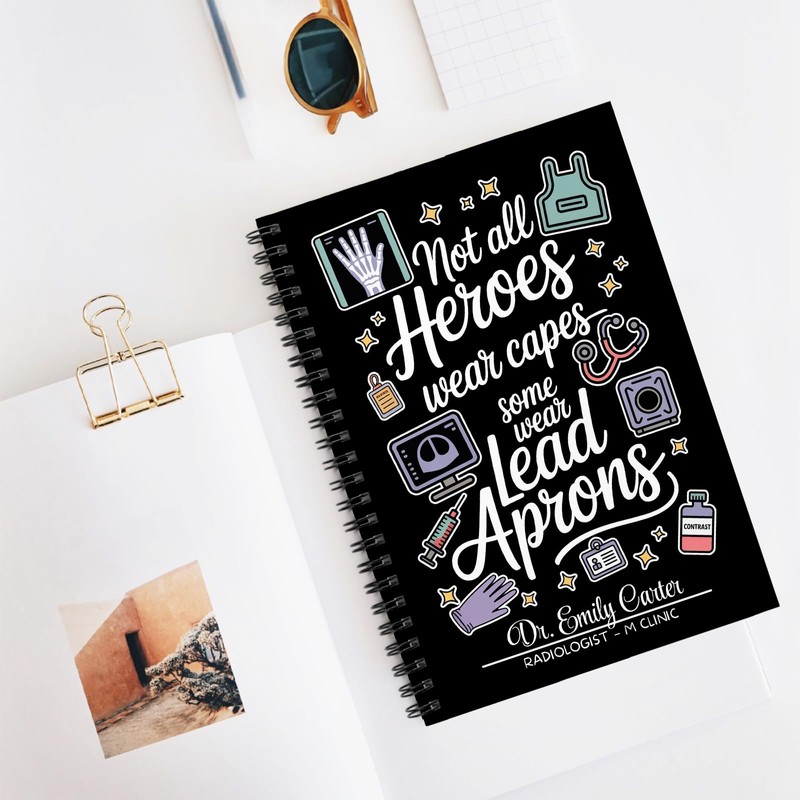 Not all
Heroes
wear capes
some
wear
Lead
Aprons
CONTRAST
Dr. Emily Carter
RADIOLOGIST - M CLINIC